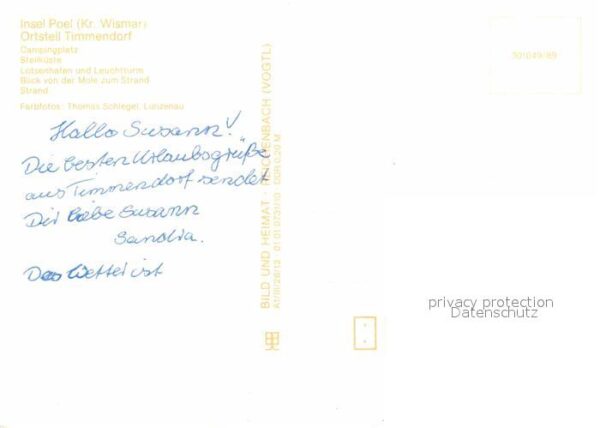 Insel Poel (Kr. Wismar)
Ortsteil Timmendorf
Campingplatz
Steilküste
Lotsenhafen und Leuchtturm
Blick von der Mole zum Strand
Strand
Farbfotos: Thomas Schlegel, Lunzenau
Hallo Susann!
Die besten Urlaubsgrüße
aus Timmendorf sendet
Dir liebe Susann
Sandra.
Das Wetter ist
BILD UND HEIMAT · REICHENBACH (VOGTL)
A1/III/26/13 01 01 0731/10 DDR 0,20 M
301049/89
privacy protection
Datenschutz